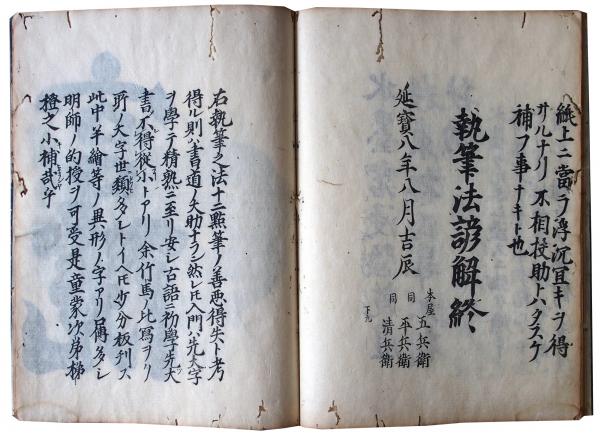 紙上ニ當ラ浮沉宜キヲ得
サルナリ不相授助トハタスケ
補フ事ナキト也
執筆法諺解終
延寶八年八月吉辰
本屋 五兵衛
同 平兵衛
同 清兵衛
下九
右執筆之法十二點筆ノ善悪得失ト考
得ル則ハ書道ノ大助ナラン然レ𪜈入門ハ先大字
ヲ學テ精熟ニ至リ安シ古語ニ初學先大
書不得從小トアリ余竹馬ノ比寫ヲリ
所ノ大字世類多シトイヘ𪜈少分板刊ス
此中半繪等ノ異形ノ字アリ傳多シ
明師ノ的授ヲ可受是童蒙次第梯
橙之小補哉乎